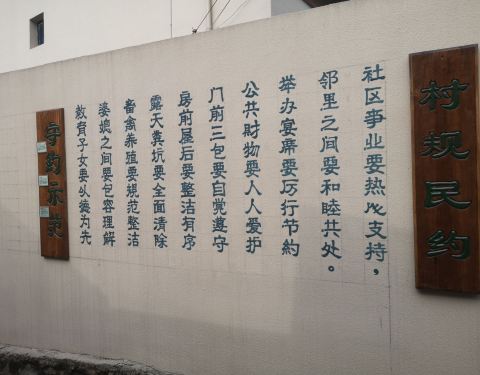 村规民约
社区事业要热心支持，
邻里之间要和睦共处。
举办宴席要厉行节約
公共財物要人人爱护
门前三包要自觉遵守
房前屋后要整洁有序
露天粪坑要全面清除
畜禽养殖要规范整洁
婆媳之间要包容理解
教育子女要以德为先
守约示范